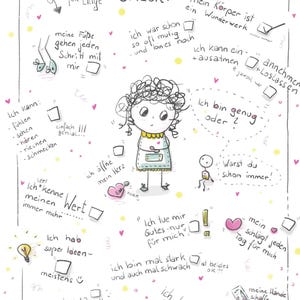 für
meine Füße
gehen jeden
Schritt mit
mir
ich war schon
so oft mutig
und
noch
mein Körper ist
ein Wunderwerk
ich kann ein-
+ausatmen
annehmen
+loslassen
Ich kann:
fühlen
sehen
hören
riechen
schmecken
einfach
!!!
Ich bin genug
oder?
ich öffne
mein Herz
Warst du
schon immer!
Ich kenne
meinen Wert
immer mehr
Ich tue mir
Gutes
für mich
!
mein
schlägt jeden
Tag für mich
Ich hab
super Ideen
meistens
Ich bin mal stark
und auch mal schwach
ist beides
ok!!
Ich
meine Hände